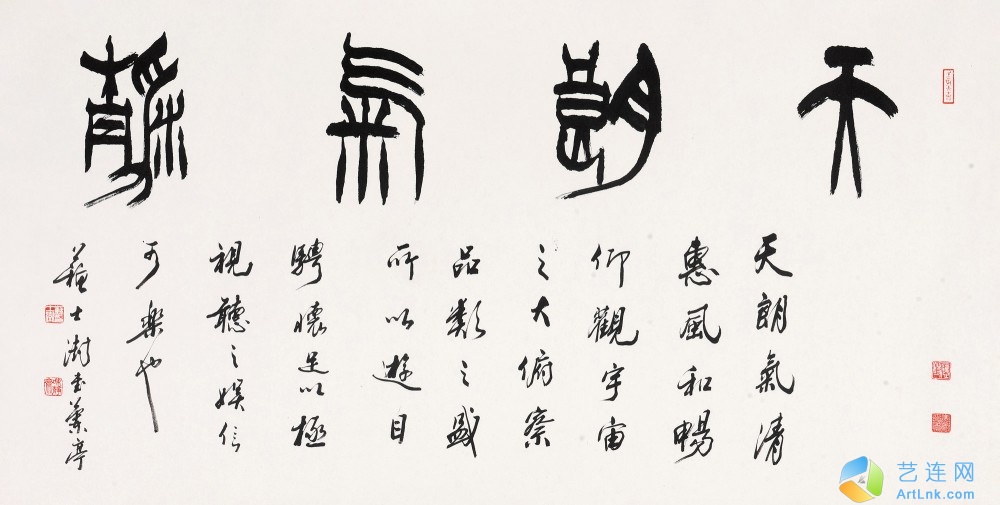 天朗氣靜
天朗氣清
惠風和暢
仰觀宇宙
之大俯察
品類之盛
所以遊目
騁懷足以極
視聽之娛信
可樂也
蘇士澍書蘭亭
艺连网
ArtLnk.com